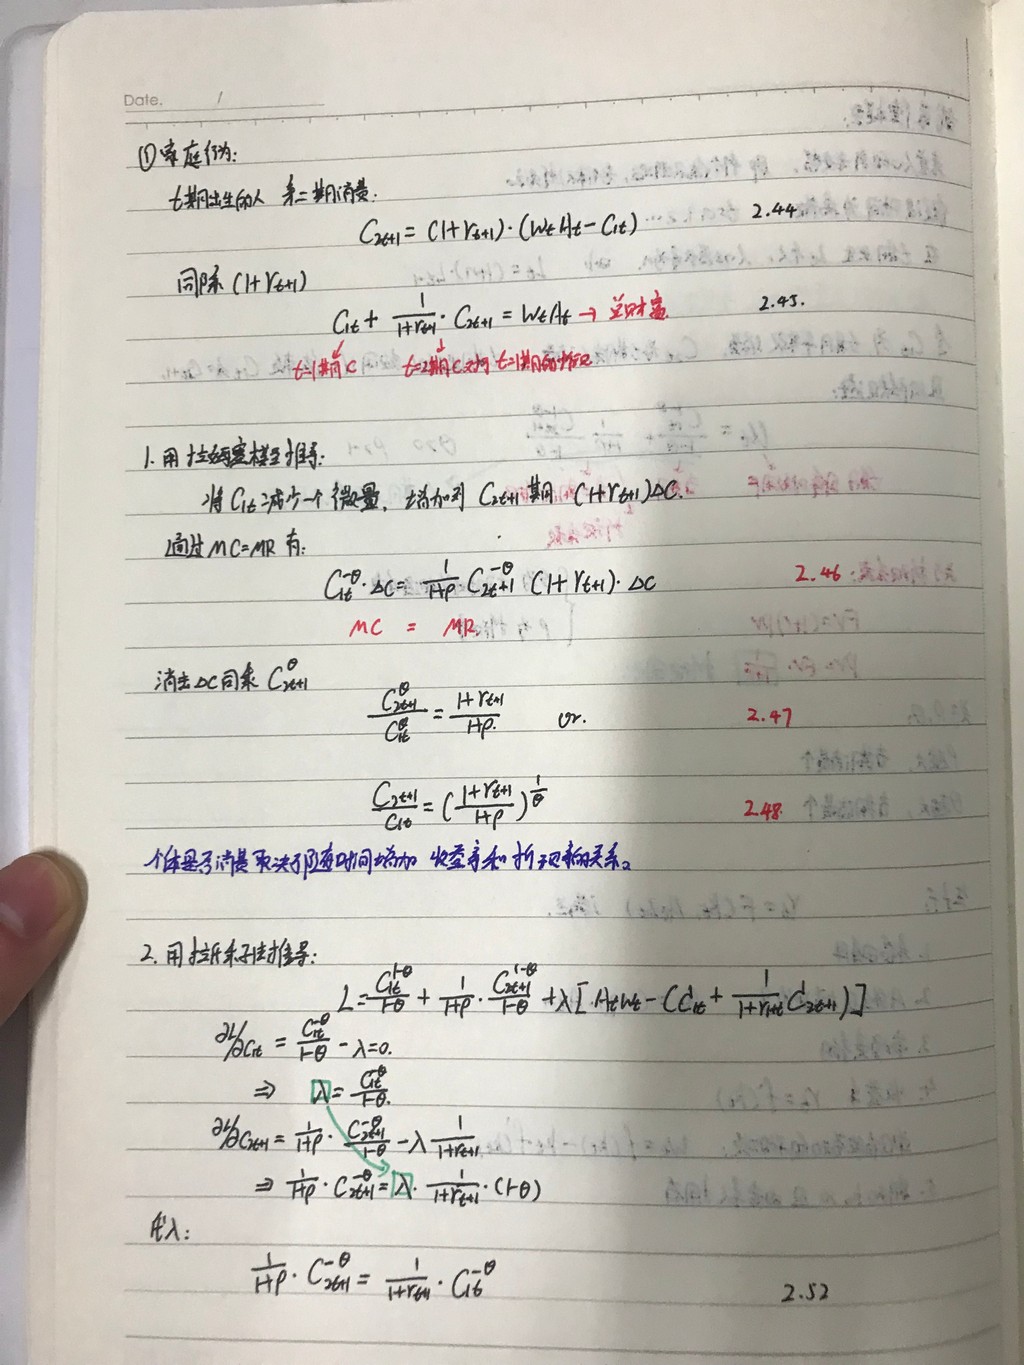 Date. /
①家庭行为:
t期出生的人 第二期消费:
C₂ₜ₊₁ = (1+rₜ₊₁)·(WₜAₜ-C₁ₜ) 2.44
同除(1+rₜ₊₁)
C₁ₜ + 1/(1+rₜ₊₁) · C₂ₜ₊₁ = WₜAₜ → 总财富 2.45.
t=1期C t=2期C对 t=1期的折现
1. 用拉姆塞模型推导:
将C₁ₜ减少一个微量, 增加到 C₂ₜ₊₁期 (1+rₜ₊₁)ΔC.
通过MC=MR有:
C₁ₜ^-θ·ΔC = 1/(1+ρ) C₂ₜ₊₁^-θ (1+rₜ₊₁)·ΔC 2.46
MC = MR
消去ΔC同乘 C₂ₜ₊₁^θ
C₂ₜ₊₁^θ/C₁ₜ^θ = (1+rₜ₊₁)/(1+ρ) or. 2.47
C₂ₜ₊₁/C₁ₜ = ((1+rₜ₊₁)/(1+ρ))^(1/θ) 2.48.
个体是否消费取决于随时间增加 收益率和折现率的关系。
2. 用拉氏乘子法推导:
L = C₁ₜ^(1-θ)/(1-θ) + 1/(1+ρ) · C₂ₜ₊₁^(1-θ)/(1-θ) + λ[AₜWₜ-(C₁ₜ + 1/(1+r₁₊ₜ) C₂ₜ₊₁)]
∂L/∂C₁ₜ = C₁ₜ^-θ/(1-θ) - λ=0.
⇒ λ = C₁ₜ^-θ/(1-θ).
∂L/∂C₂ₜ₊₁ = 1/(1+ρ) · C₂ₜ₊₁^-θ/(1-θ) - λ 1/(1+rₜ₊₁)
⇒ 1/(1+ρ) · C₂ₜ₊₁^-θ = λ · 1/(1+rₜ₊₁) · (1-θ)
代λ:
1/(1+ρ) · C₂ₜ₊₁^-θ = 1/(1+rₜ₊₁) · C₁ₜ^-θ 2.52